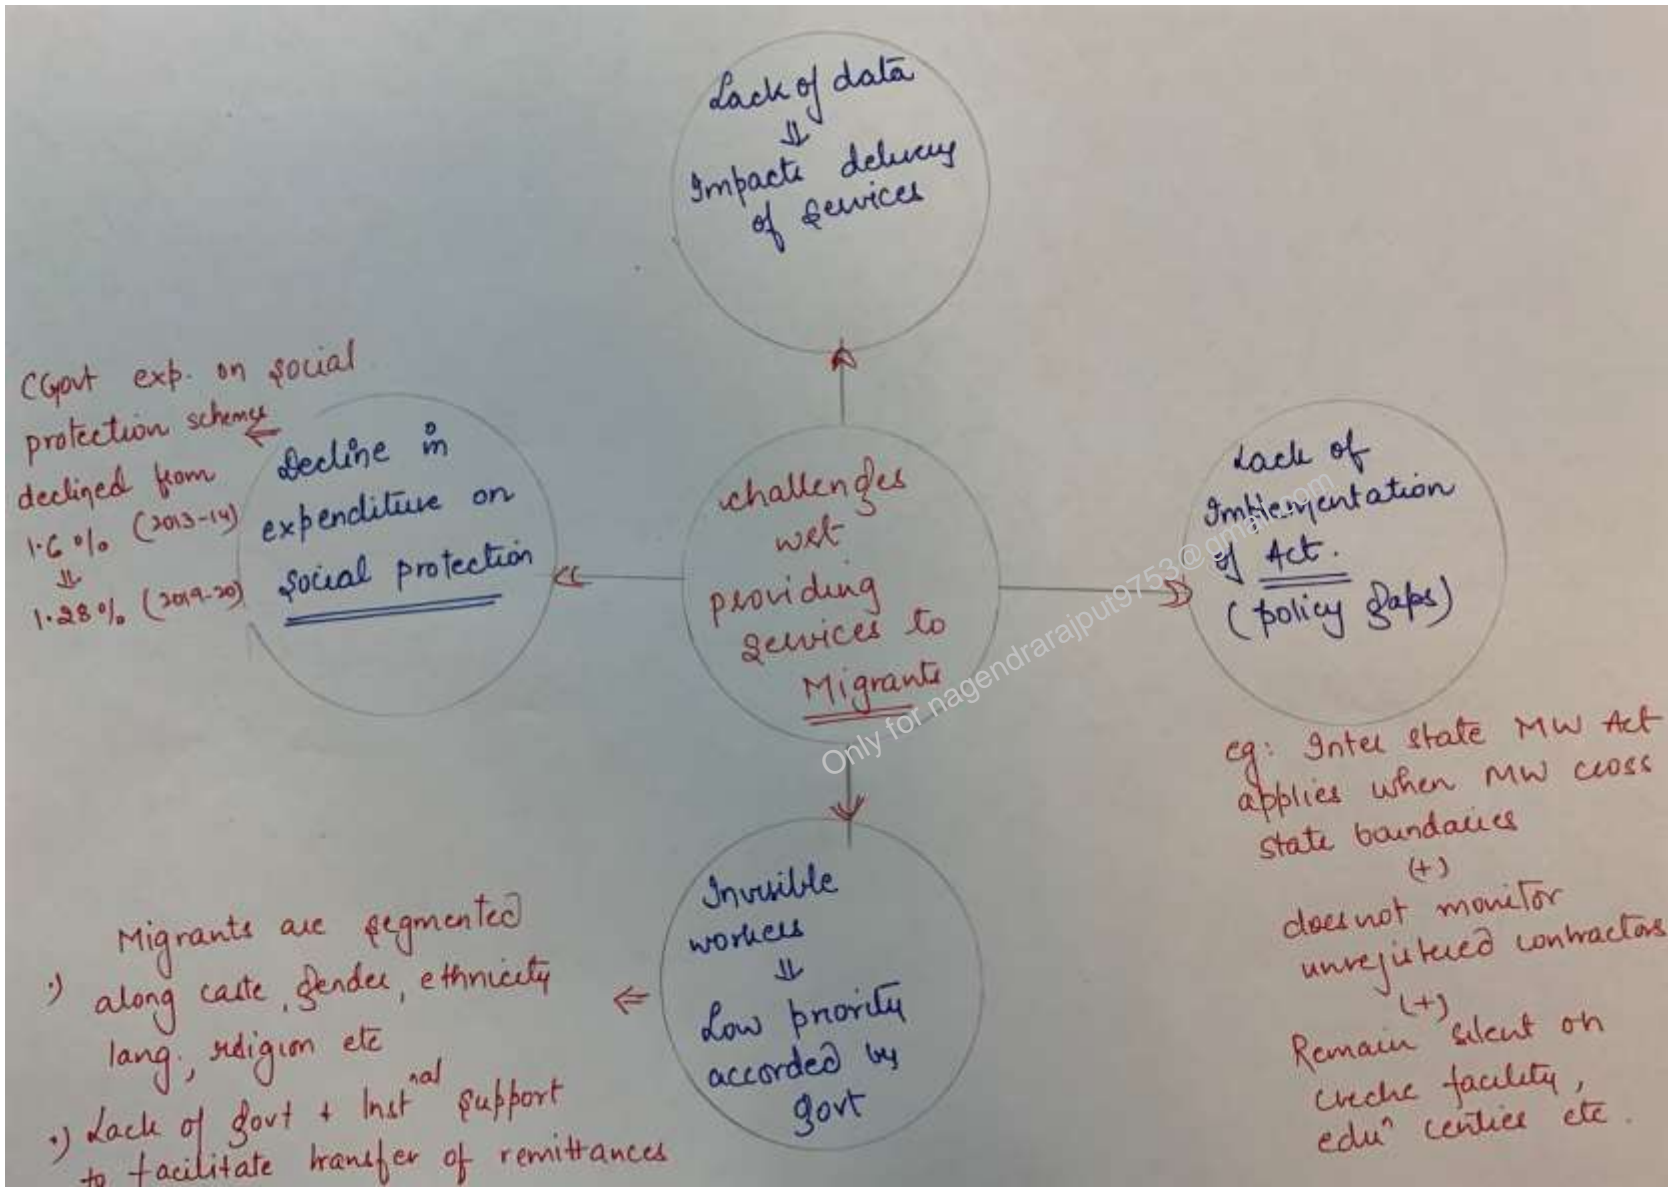 Lack of data
⇓
Impacts delivery
of services
CGovt exp. on social
protection scheme
declined from
1.6% (2013-14)
⇓
1.28% (2019-20)
⇐
Decline in
expenditure on
social protection
challenges
wrt
providing
services to
Migrants
Lack of
Implementation
of Act.
(policy gaps)
eg: Inter state MW Act
applies when MW cross
state boundaries
(+)
does not monitor
unregistered contractors
(+)
Remain silent on
creche facility,
eduⁿ centres etc.
Invisible
workers
⇓
Low priority
accorded by
govt
⇐
Migrants are segmented
·) along caste, gender, ethnicity
lang., religion etc
·) Lack of govt + Instⁿᵃˡ support
to facilitate transfer of remittances
Only for nagendrarajput9753@gmail.com